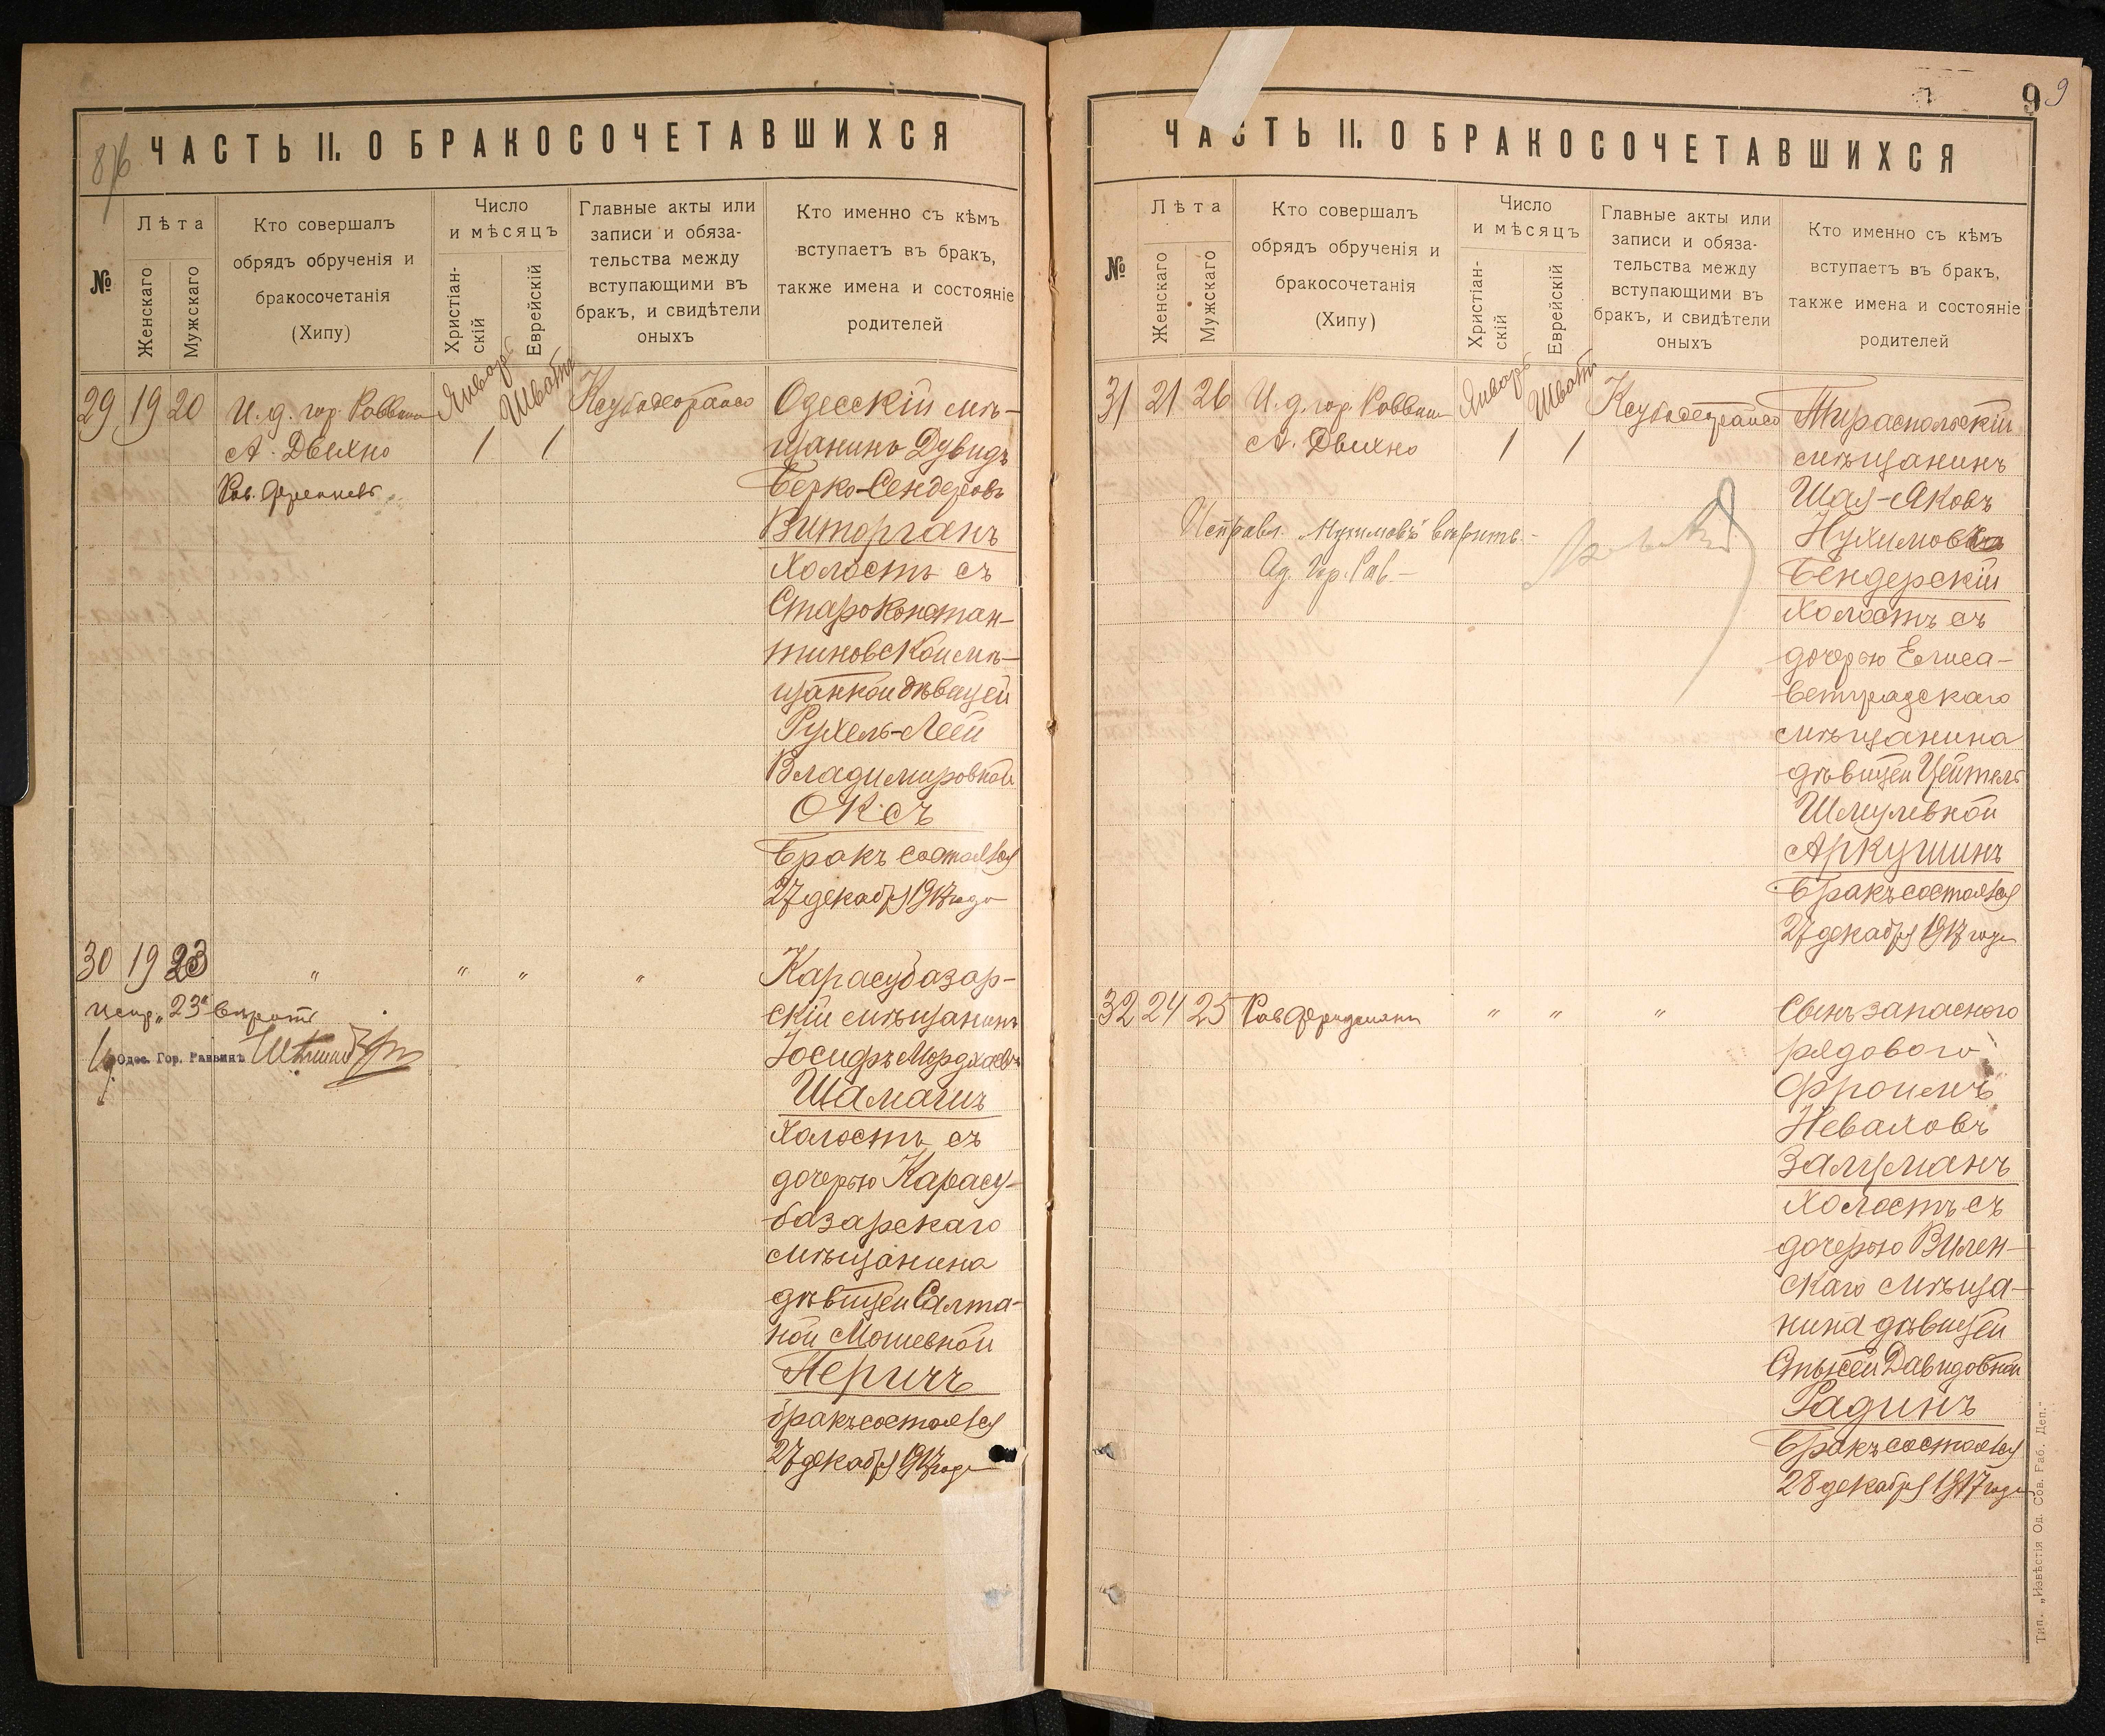 8/6
ЧАСТЬ II. О БРАКОСОЧЕТАВШИХСЯ
№
Лѣта
Женскаго
Мужскаго
Кто совершалъ
обрядъ обрученія и
бракосочетанія
(Хипу)
Число
и мѣсяцъ
Христіан-
скій
Еврейскій
Главные акты или
записи и обяза-
тельства между
вступающими въ
бракъ, и свидѣтели
оныхъ
Кто именно съ кѣмъ
вступаетъ въ бракъ,
также имена и состояніе
родителей
29 19 20
И. д. гор. Раввина
А. Двихно
Январь
1
Шватъ
1
Одесскій мѣ-
щанинъ Дувидъ
Берко-Сендеровъ
Виторганъ
холостъ съ
Староконстан-
тиновской мѣ-
щанкой дѣвицей
Рухель-Леей
Владимировной
Оксъ
Бракъ состоялся
27 декабря 1917 года
30 19 23
" " " "
испр. "23" вѣрить
Одес. Гор. Раввинъ
Карасубазар-
скій мѣщанинъ
Іосифъ Мордхаевъ
Шамагизъ
холостъ съ
дочерью Карасу-
базарскаго
мѣщанина
дѣвицей Салта-
ной Мошевной
Перичъ
бракъ состоялся
27 декабря 1917 года
9 9
ЧАСТЬ II. О БРАКОСОЧЕТАВШИХСЯ
№
Лѣта
Женскаго
Мужскаго
Кто совершалъ
обрядъ обрученія и
бракосочетанія
(Хипу)
Число
и мѣсяцъ
Христіан-
скій
Еврейскій
Главные акты или
записи и обяза-
тельства между
вступающими въ
бракъ, и свидѣтели
оныхъ
Кто именно съ кѣмъ
вступаетъ въ бракъ,
также имена и состояніе
родителей
31 21 26
И. д. гор. Раввина
А. Двихно
Январь
1
Шватъ
1
Исправл. "Нухимовъ" вѣрить
Од. Гор. Рав.
Тираспольскій
мѣщанинъ
Шая-Яковъ
Нухимовъ
Бендерскій
холостъ съ
дочерью Елиса-
ветградскаго
мѣщанина
дѣвицей Цейтель
Шмулевной
Аркушинъ
Бракъ состоялся
27 декабря 1917 года
32 24 25
Рав. Фридманъ
" " "
Сынъ запаснаго
рядового
Фроимъ
Неваховъ
Залцманъ
холостъ съ
дочерью Вилен-
скаго мѣща-
нина дѣвицей
Давидовной
Радинъ
Бракъ состоялся
28 декабря 1917 года
Тип. „Извѣстія Од. Сов. Раб. Деп.“